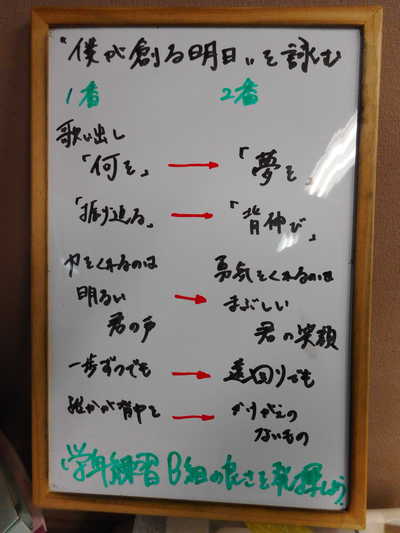 "僕が創る明日"を詠む
1番 2番
歌い出し
「何を」 → 「夢を」
「振り返る」 → 「背伸び」
力をくれるのは 勇気をくれるのは
明るい → まぶしい
君の声 君の笑顔
一歩ずつでも → 遠回りでも
誰かが背中を → かけがえの
ないもの
学年練習 B組の良さを発揮しよう!